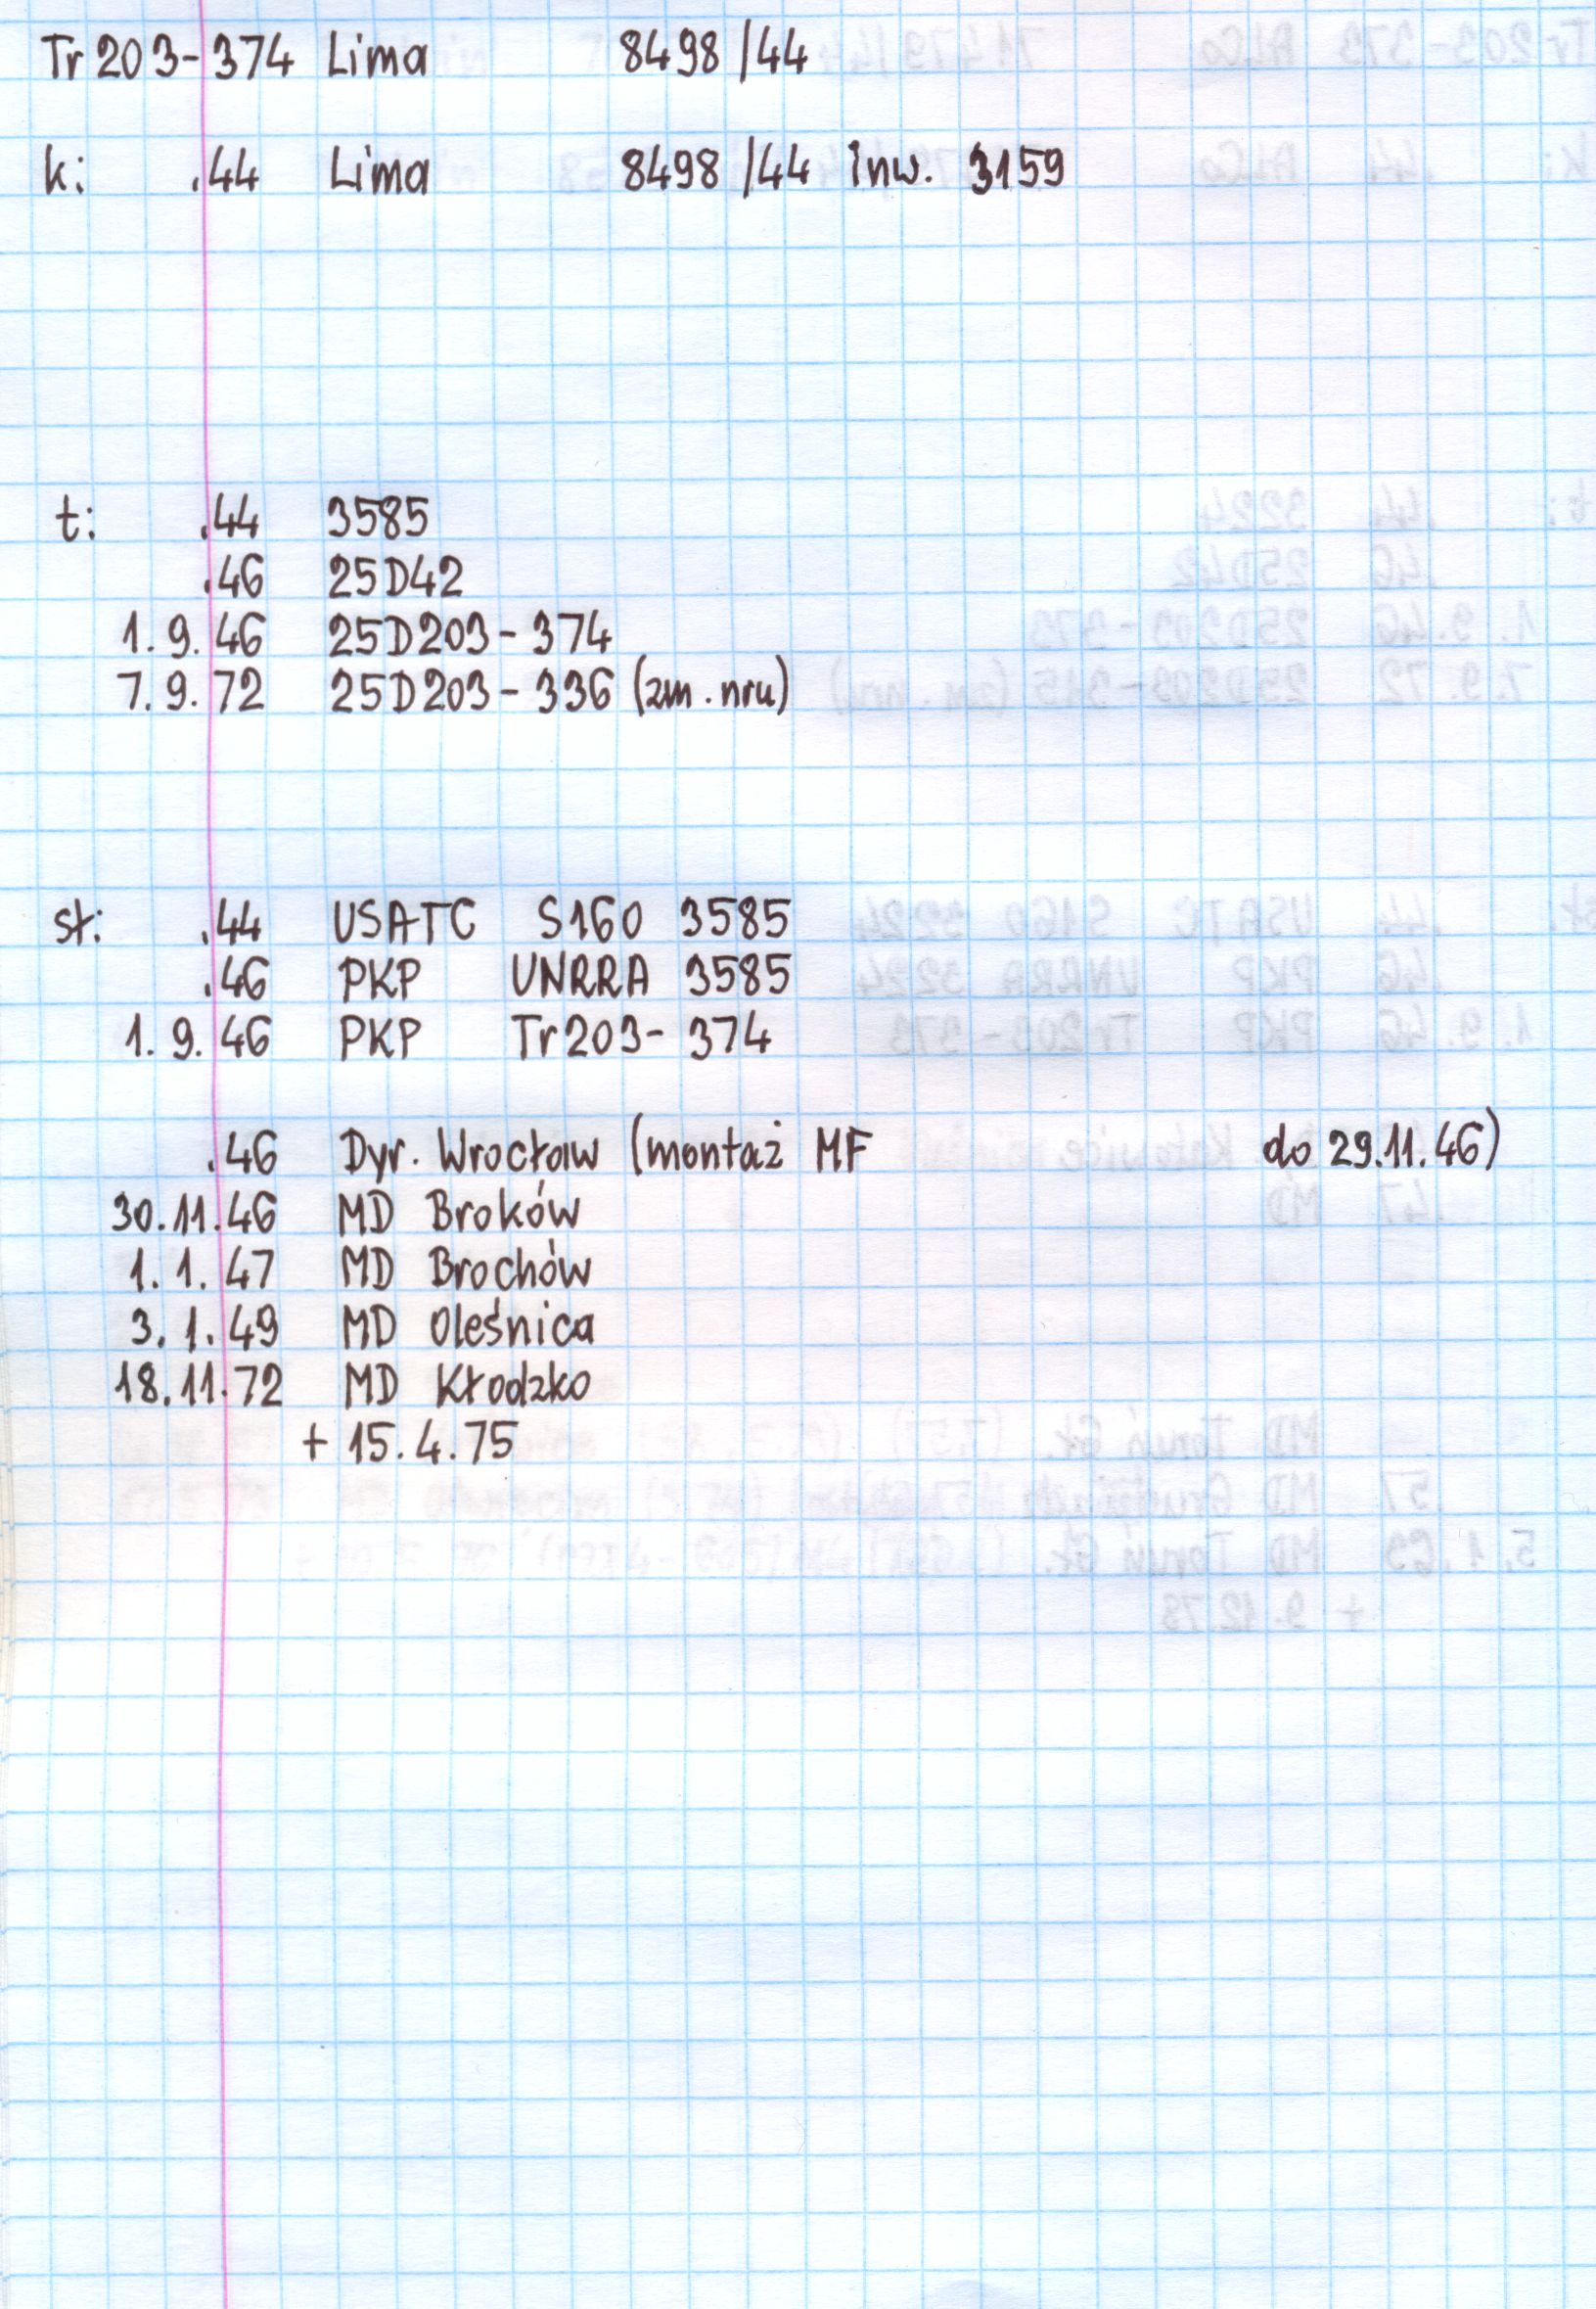 Tr 203-374 Lima 8498/44
k: .44 Lima 8498/44 inw. 3159
t: .44 3585
.46 25D42
1.9.46 25D203-374
7.9.72 25D203-336 (zm. nru)
st: .44 USATC S160 3585
.46 PKP UNRRA 3585
1.9.46 PKP Tr203-374
.46 Dyr. Wrocław (montaż MF do 29.11.46)
30.11.46 MD Broków
1.1.47 MD Brochów
3.1.49 MD Oleśnica
18.11.72 MD Kłodzko
+ 15.4.75